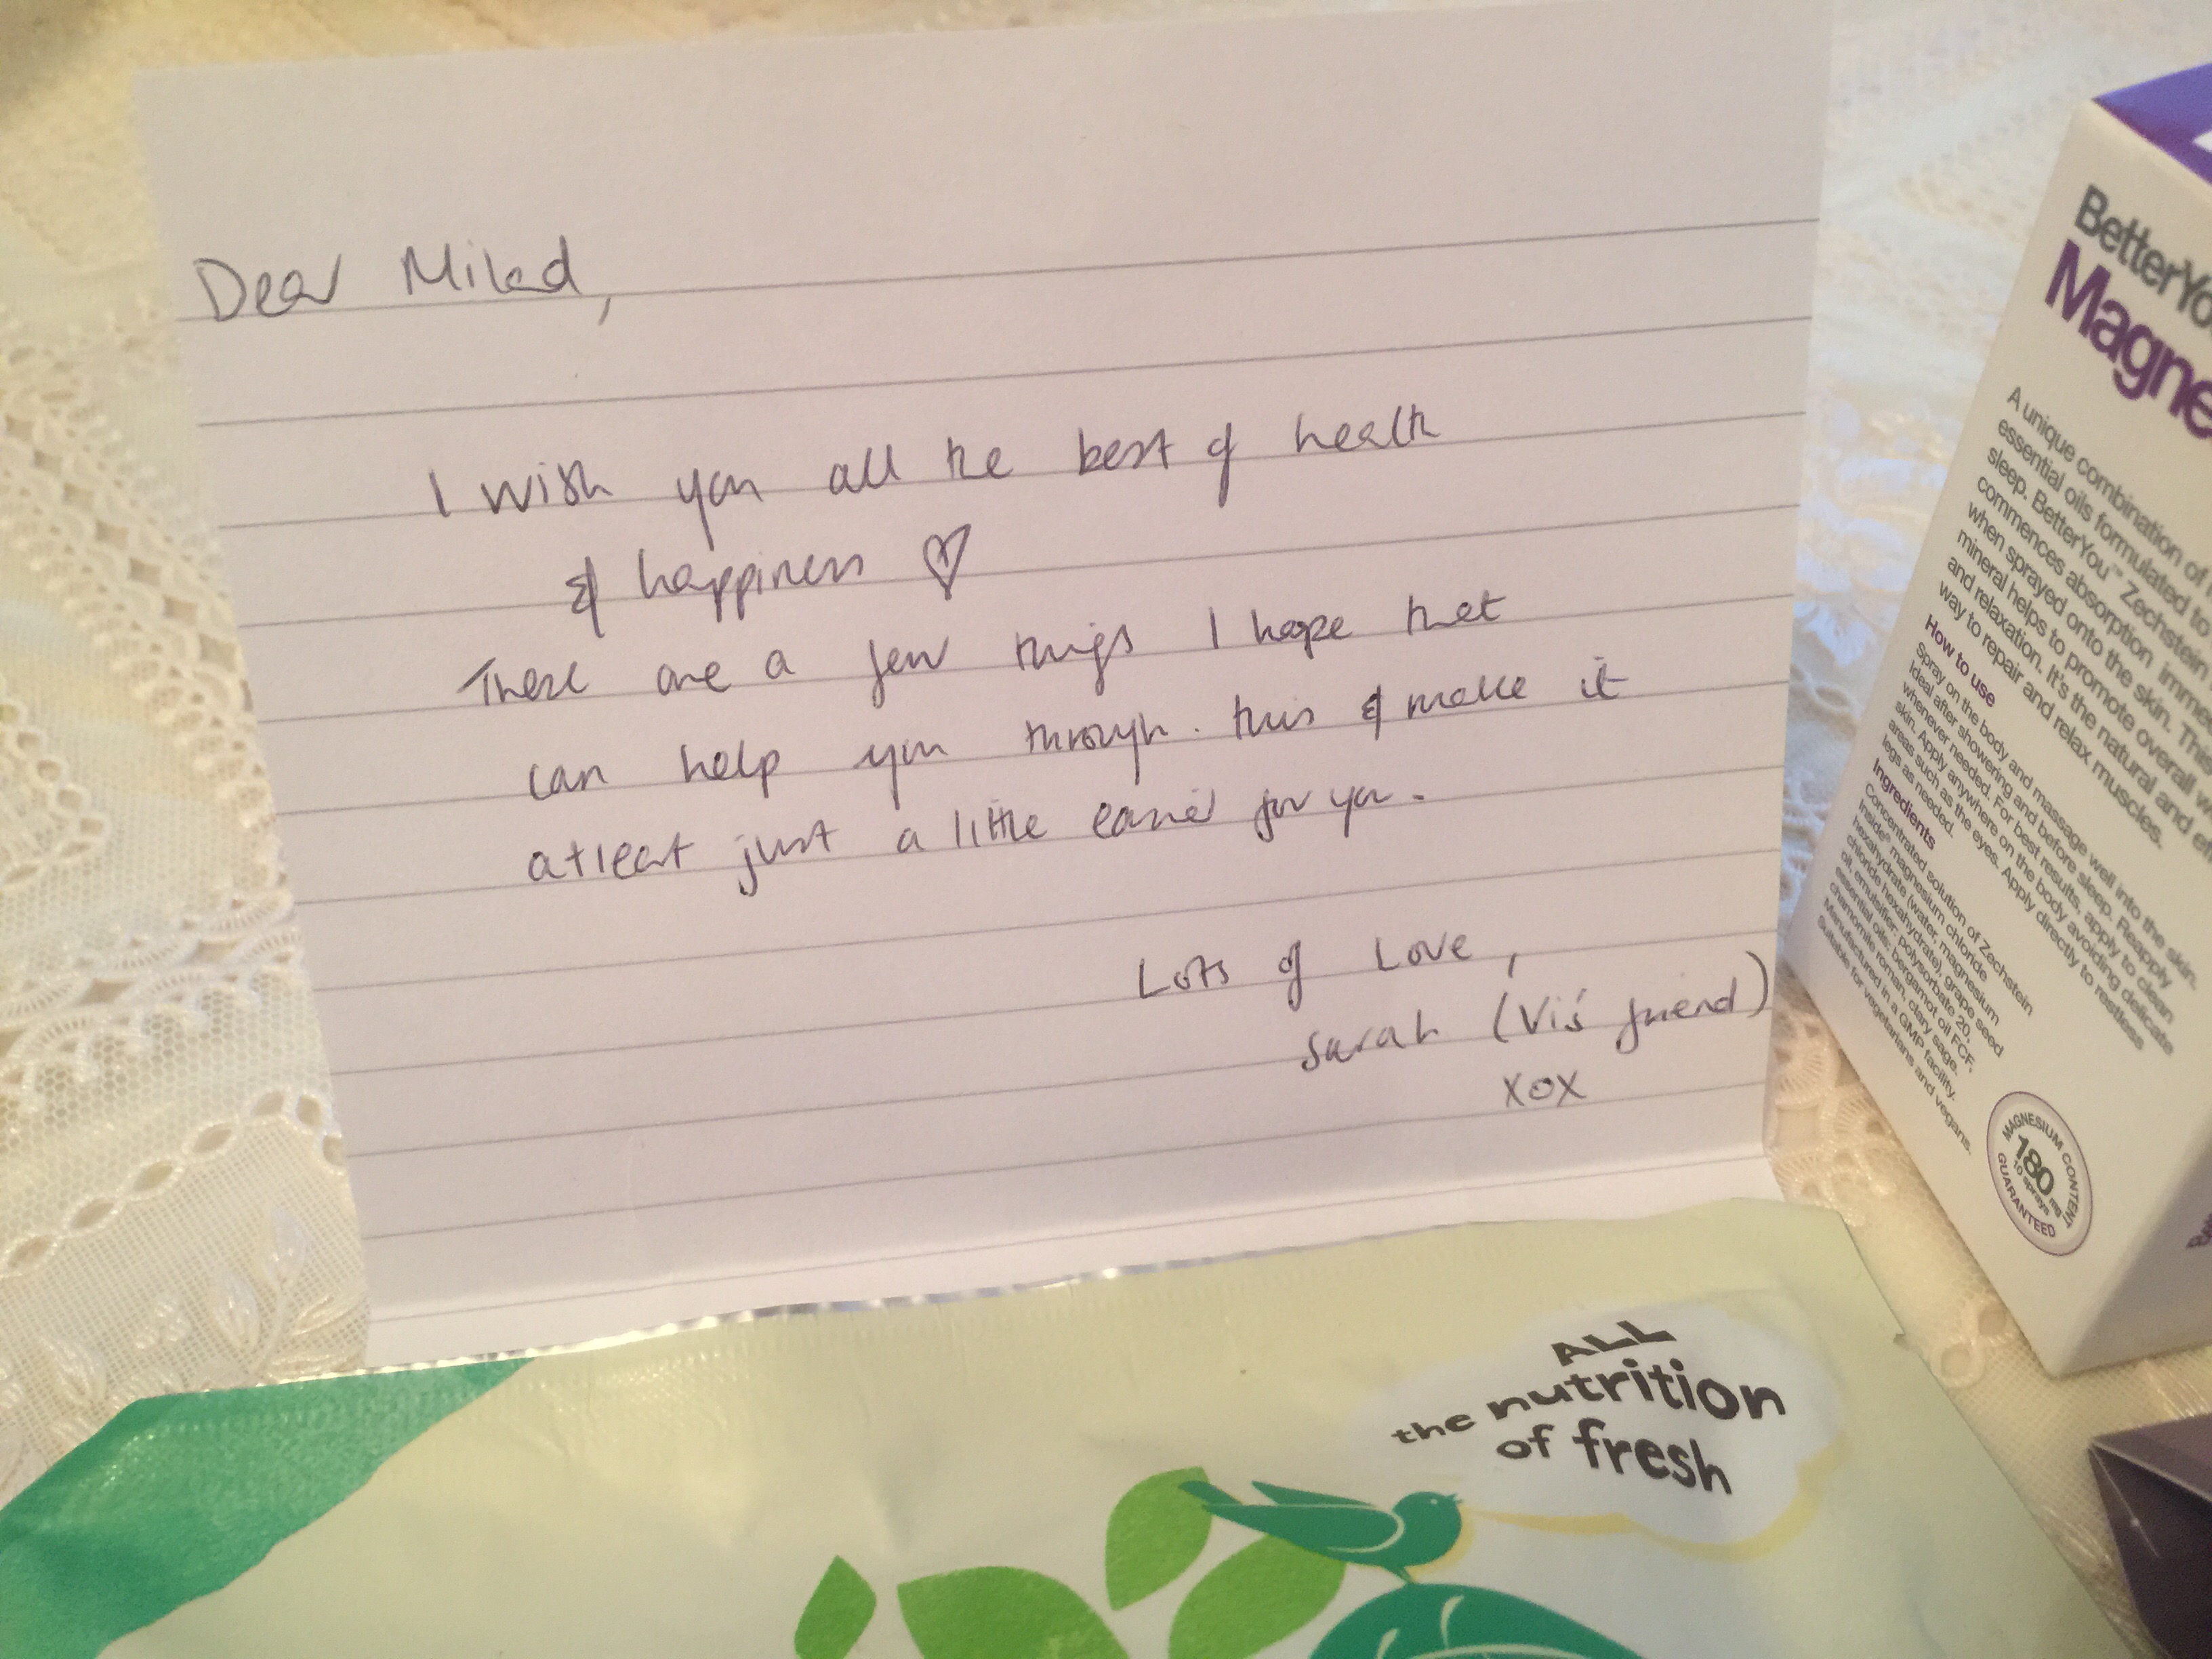 Dear Milad,
I wish you all the best of health
& happiness ♡
These are a few things I hope that
can help you through. this & make it
atleast just a little easier for you.
Lots of Love,
Sarah (Vi's friend)
xox
BetterYo
Magne
A unique combination of
essential oils formulated to
sleep. BetterYou™ Zechstein
commences absorption imme
when sprayed onto the skin. This
mineral helps to promote overall w
and relaxation. It's the natural and eff
way to repair and relax muscles.
How to use
Spray on the body and massage well into the skin.
Ideal after showering and before sleep. Reapply
whenever needed. For best results, apply to clean
skin. Apply anywhere on the body avoiding delicate
areas such as the eyes. Apply directly to restless
legs as needed.
Ingredients
Concentrated solution of Zechstein
Inside® magnesium chloride
hexahydrate (water, magnesium
chloride hexahydrate), grape seed
oil, emulsifier: polysorbate 20,
essential oils: bergamot oil FCF,
chamomile romain, clary sage.
Manufactured in a GMP facility.
Suitable for vegetarians and vegans.
MAGNESIUM CONTENT
180 mg
10 sprays
GUARANTEED
ALL
the nutrition
of fresh